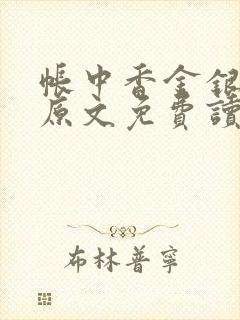 帳中香金銀
原文免費讀
布林普寧